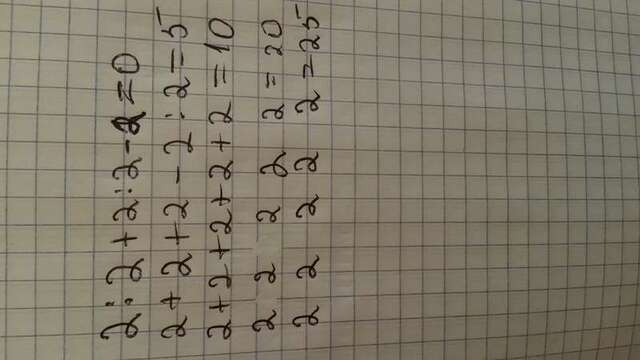 2:2+2:2-2=0
2+2+2-2:2=5
2+2+2+2+2=10
2 2 2 2 2=20
2 2 2 2 2=25